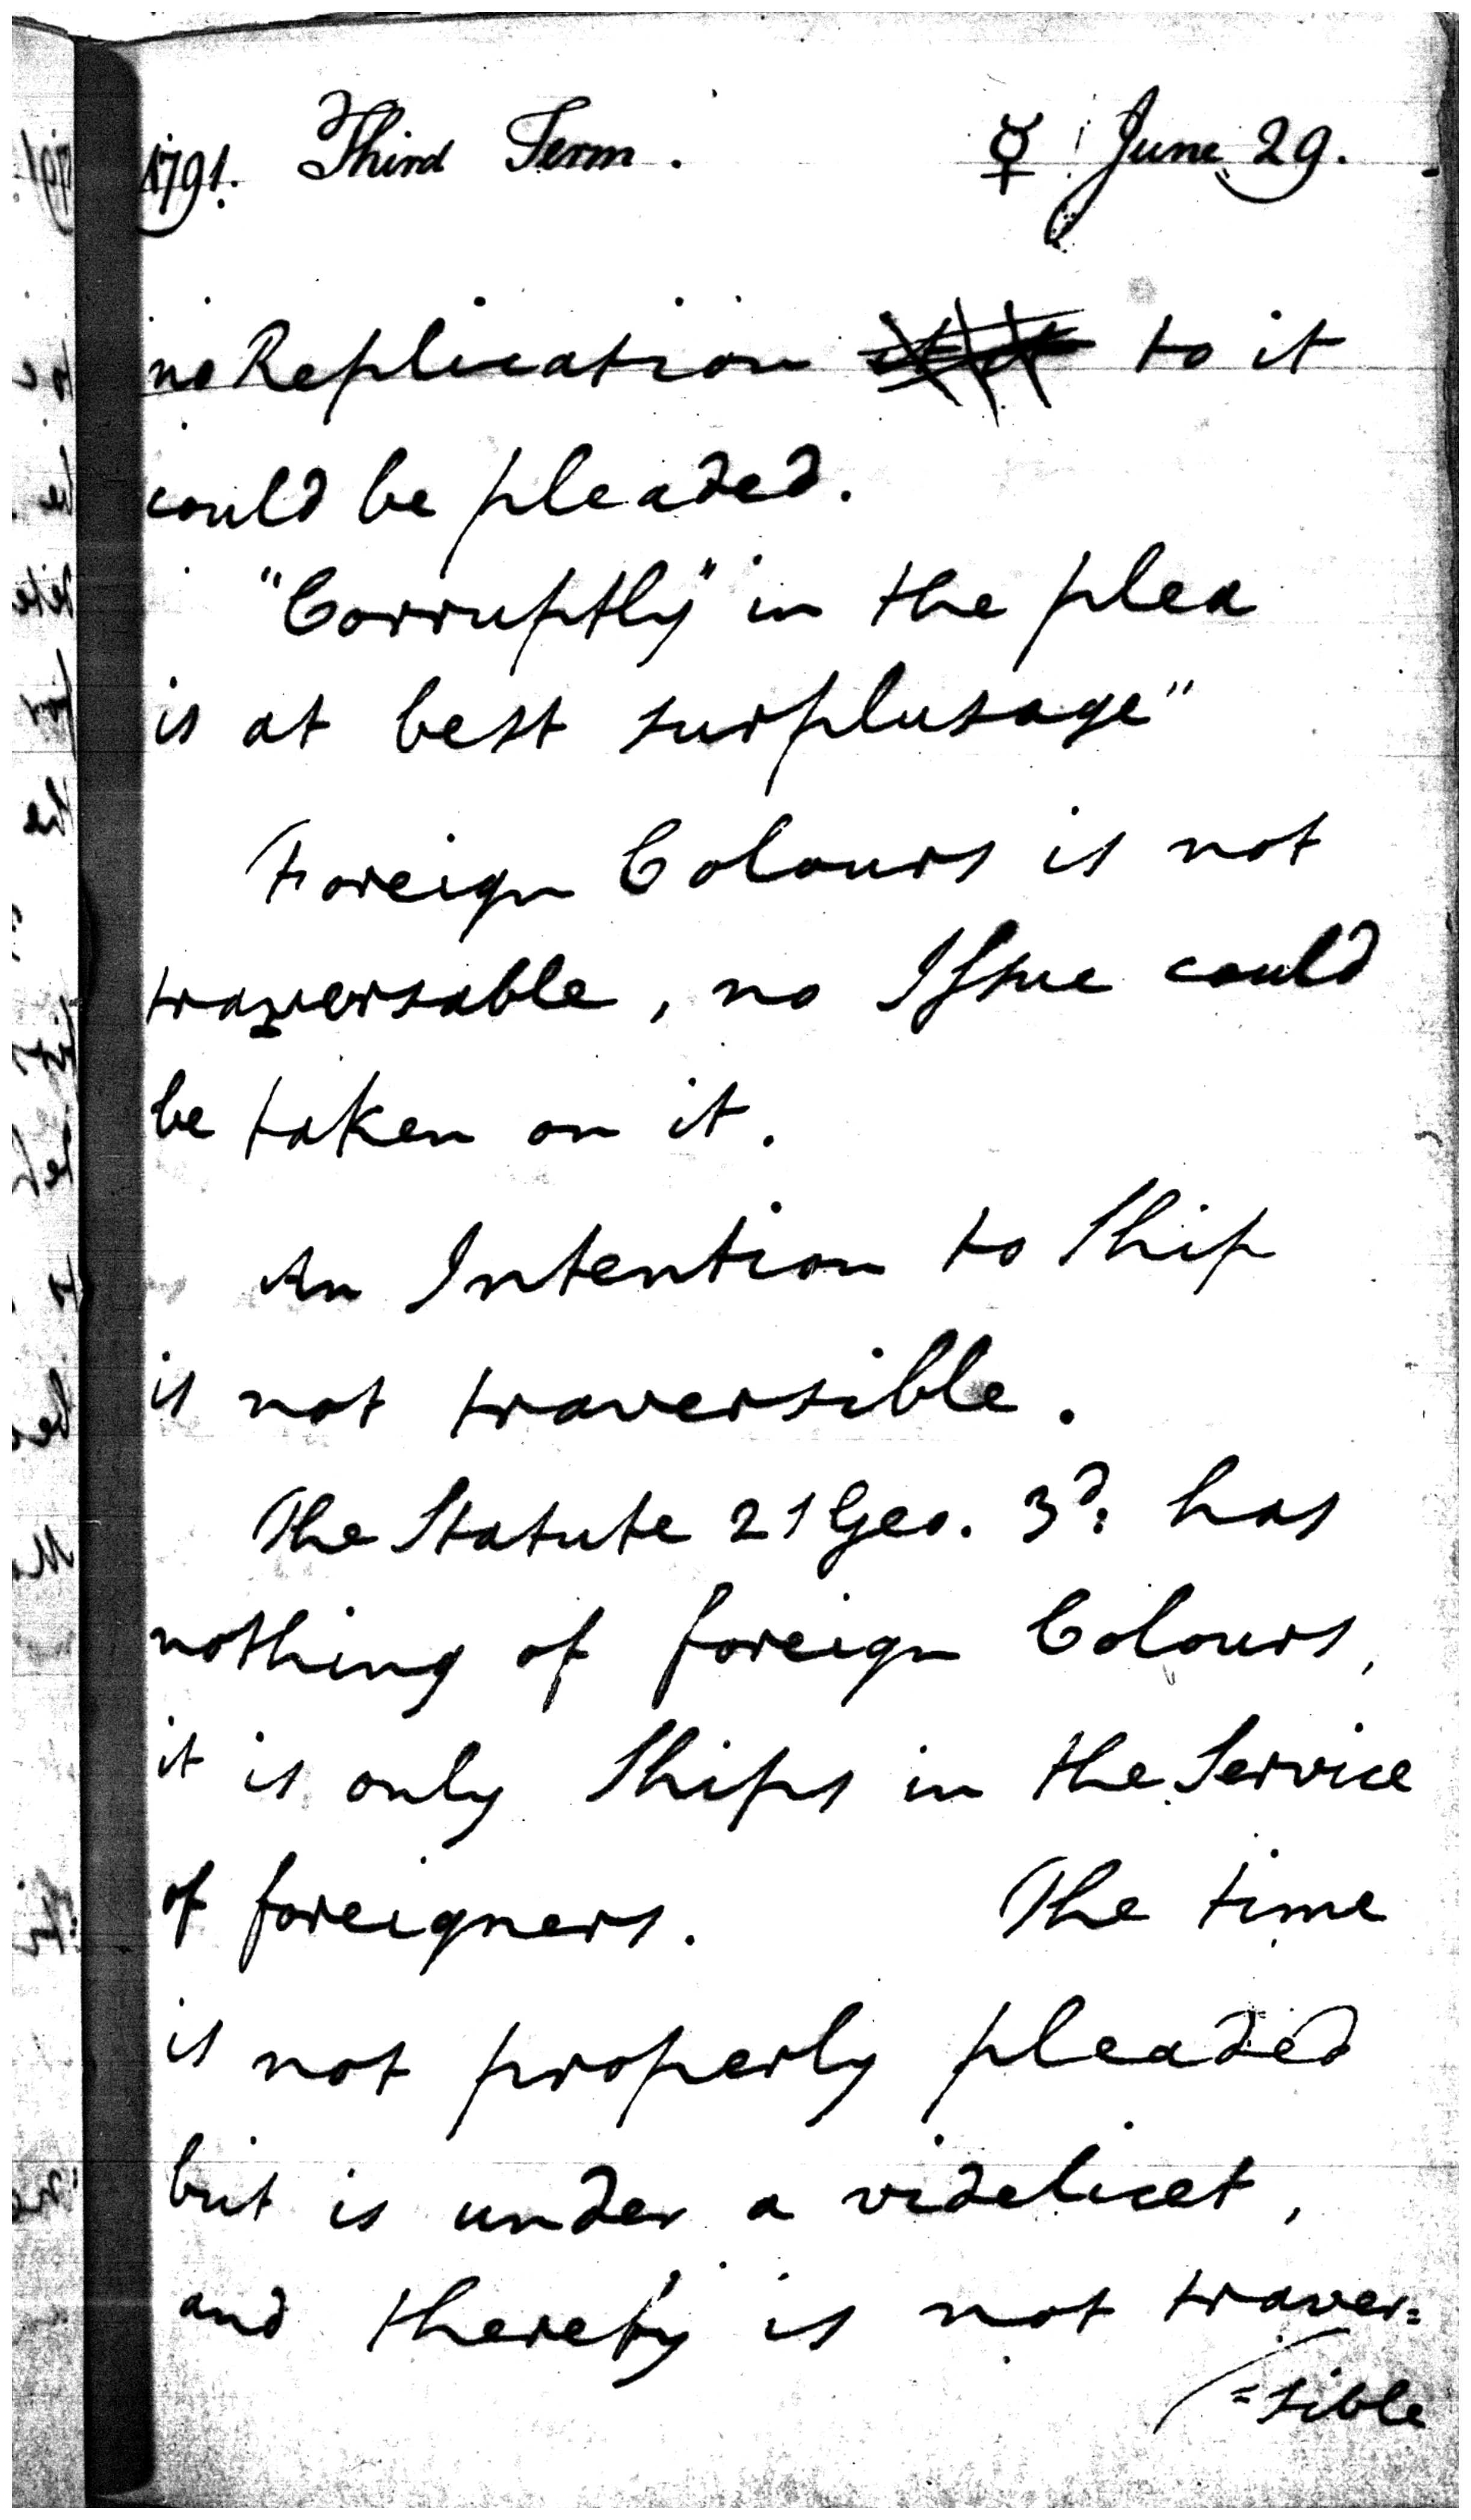 1791. Third Term. ☿ June 29.
no Replication to it
could be pleaded.
"Corruptly" in the plea
is at best surplusage"
Foreign Colours is not
traversable, no Issue could
be taken on it.
An Intention to Ship
is not traversible.
The Statute 21 Geo. 3d: has
nothing of foreign Colours,
it is only Ships in the Service
of foreigners. The time
is not properly pleaded
but is under a videlicet,
and thereby is not traver=
=sible